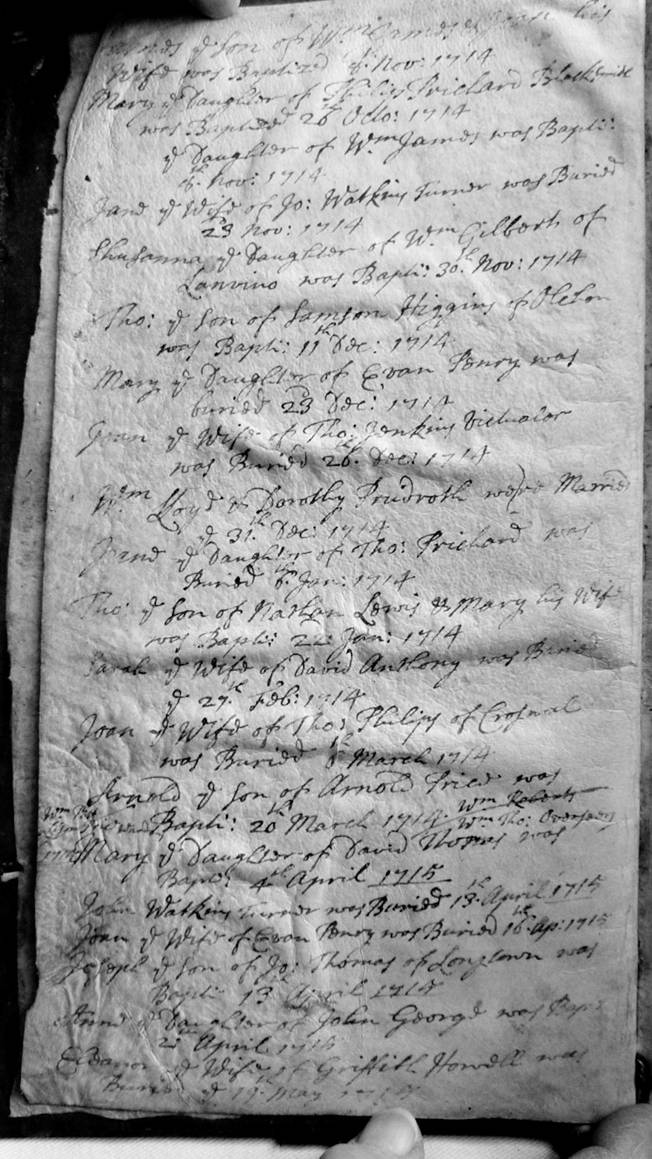 ye Son of Wm James & Joan his
Wife was Baptized ye Nov: 1714
Mary ye Daughter of Philip Prichard Blacksmith
was Baptized 26th Octo: 1714
ye Daughter of Wm James was Bapti:
16th Nov: 1714
Jane ye Wife of Jo: Watkins Turner was Buried
23 Nov: 1714
Shusanna ye Daughter of Wm Gilbert of
Lanvino was Bapti: 30th Nov: 1714
Tho: ye Son of Samson Higgins of Olchon
was Bapti: 11th Dec: 1714
Mary ye Daughter of Evan Penry was
buried 23 Dec: 1714
Joan ye Wife of Tho: Jenkins Victualer
was Buried 26th Dec: 1714
Wm Lloyd & Dorothy Prudroth were Married
ye 31th Dec: 1714
Jane ye Daughter of Tho: Prichard was
Buried 6th Jan: 1714
Tho: ye Son of Nathan Lewis & Mary his Wife
was Bapti: 22 Jan: 1714
Sarah ye Wife of David Anthony was Buried
ye 27th Feb: 1714
Joan ye Wife of Tho: Philips of Croswal
was Buried 8th March 1714
Arnold ye Son of Arnold Price was
Bapti: 20th March 1714 Wm Roberts
Wm Tho: Overseers
Mary ye Daughter of David Thomas was
Bapti: 4th April 1715
John Watkins Turner was Buried 13th April 1715
Joan ye Wife of Evan Penry was Buried 16th Ap: 1715
Joseph ye Son of Jo: Thomas of Longtown was
Bapti: 13 April 1715
Anne ye Daughter of John George was Bapt:
April 1715
Elianor ye Wife of Griffith Howell was
Buried ye 19th May 1715